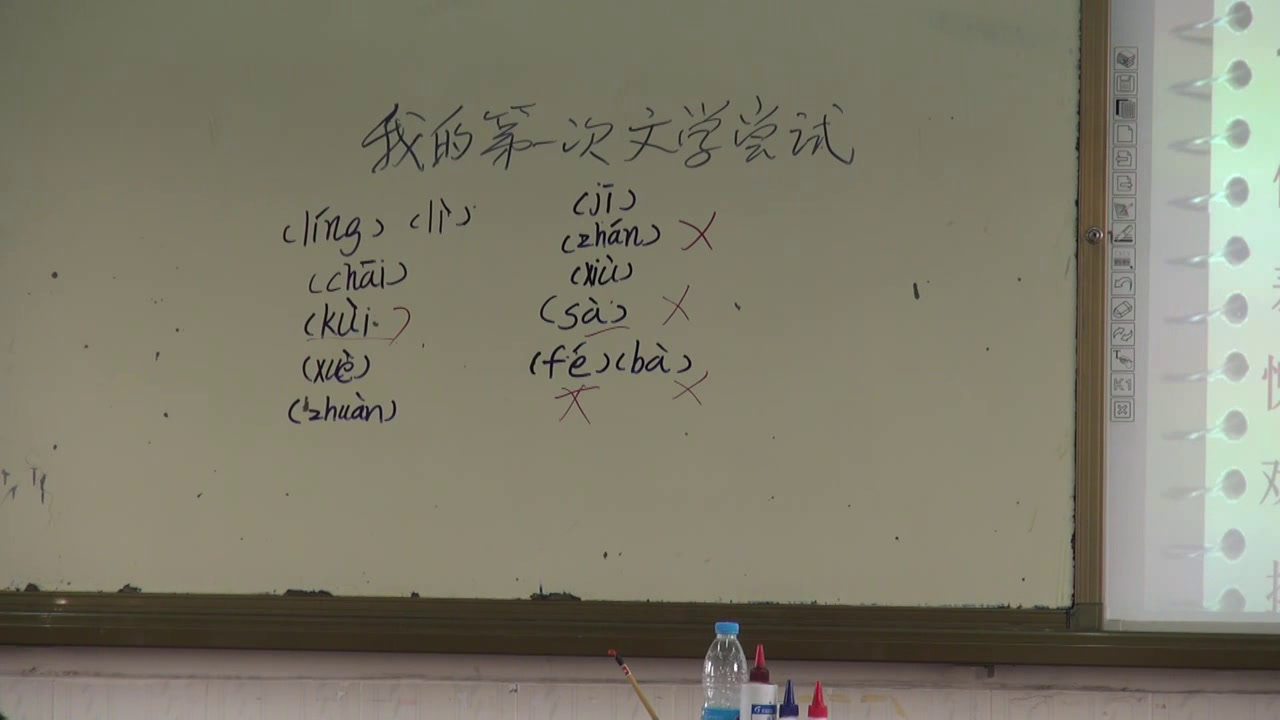 我的第一次文学尝试
(líng) (lì)
(chāi)
(kuì)
(xuè)
(zhuàn)
(jī)
(zhán) X
(xiù)
(sà) X
(fé) (bà)
X X
K1